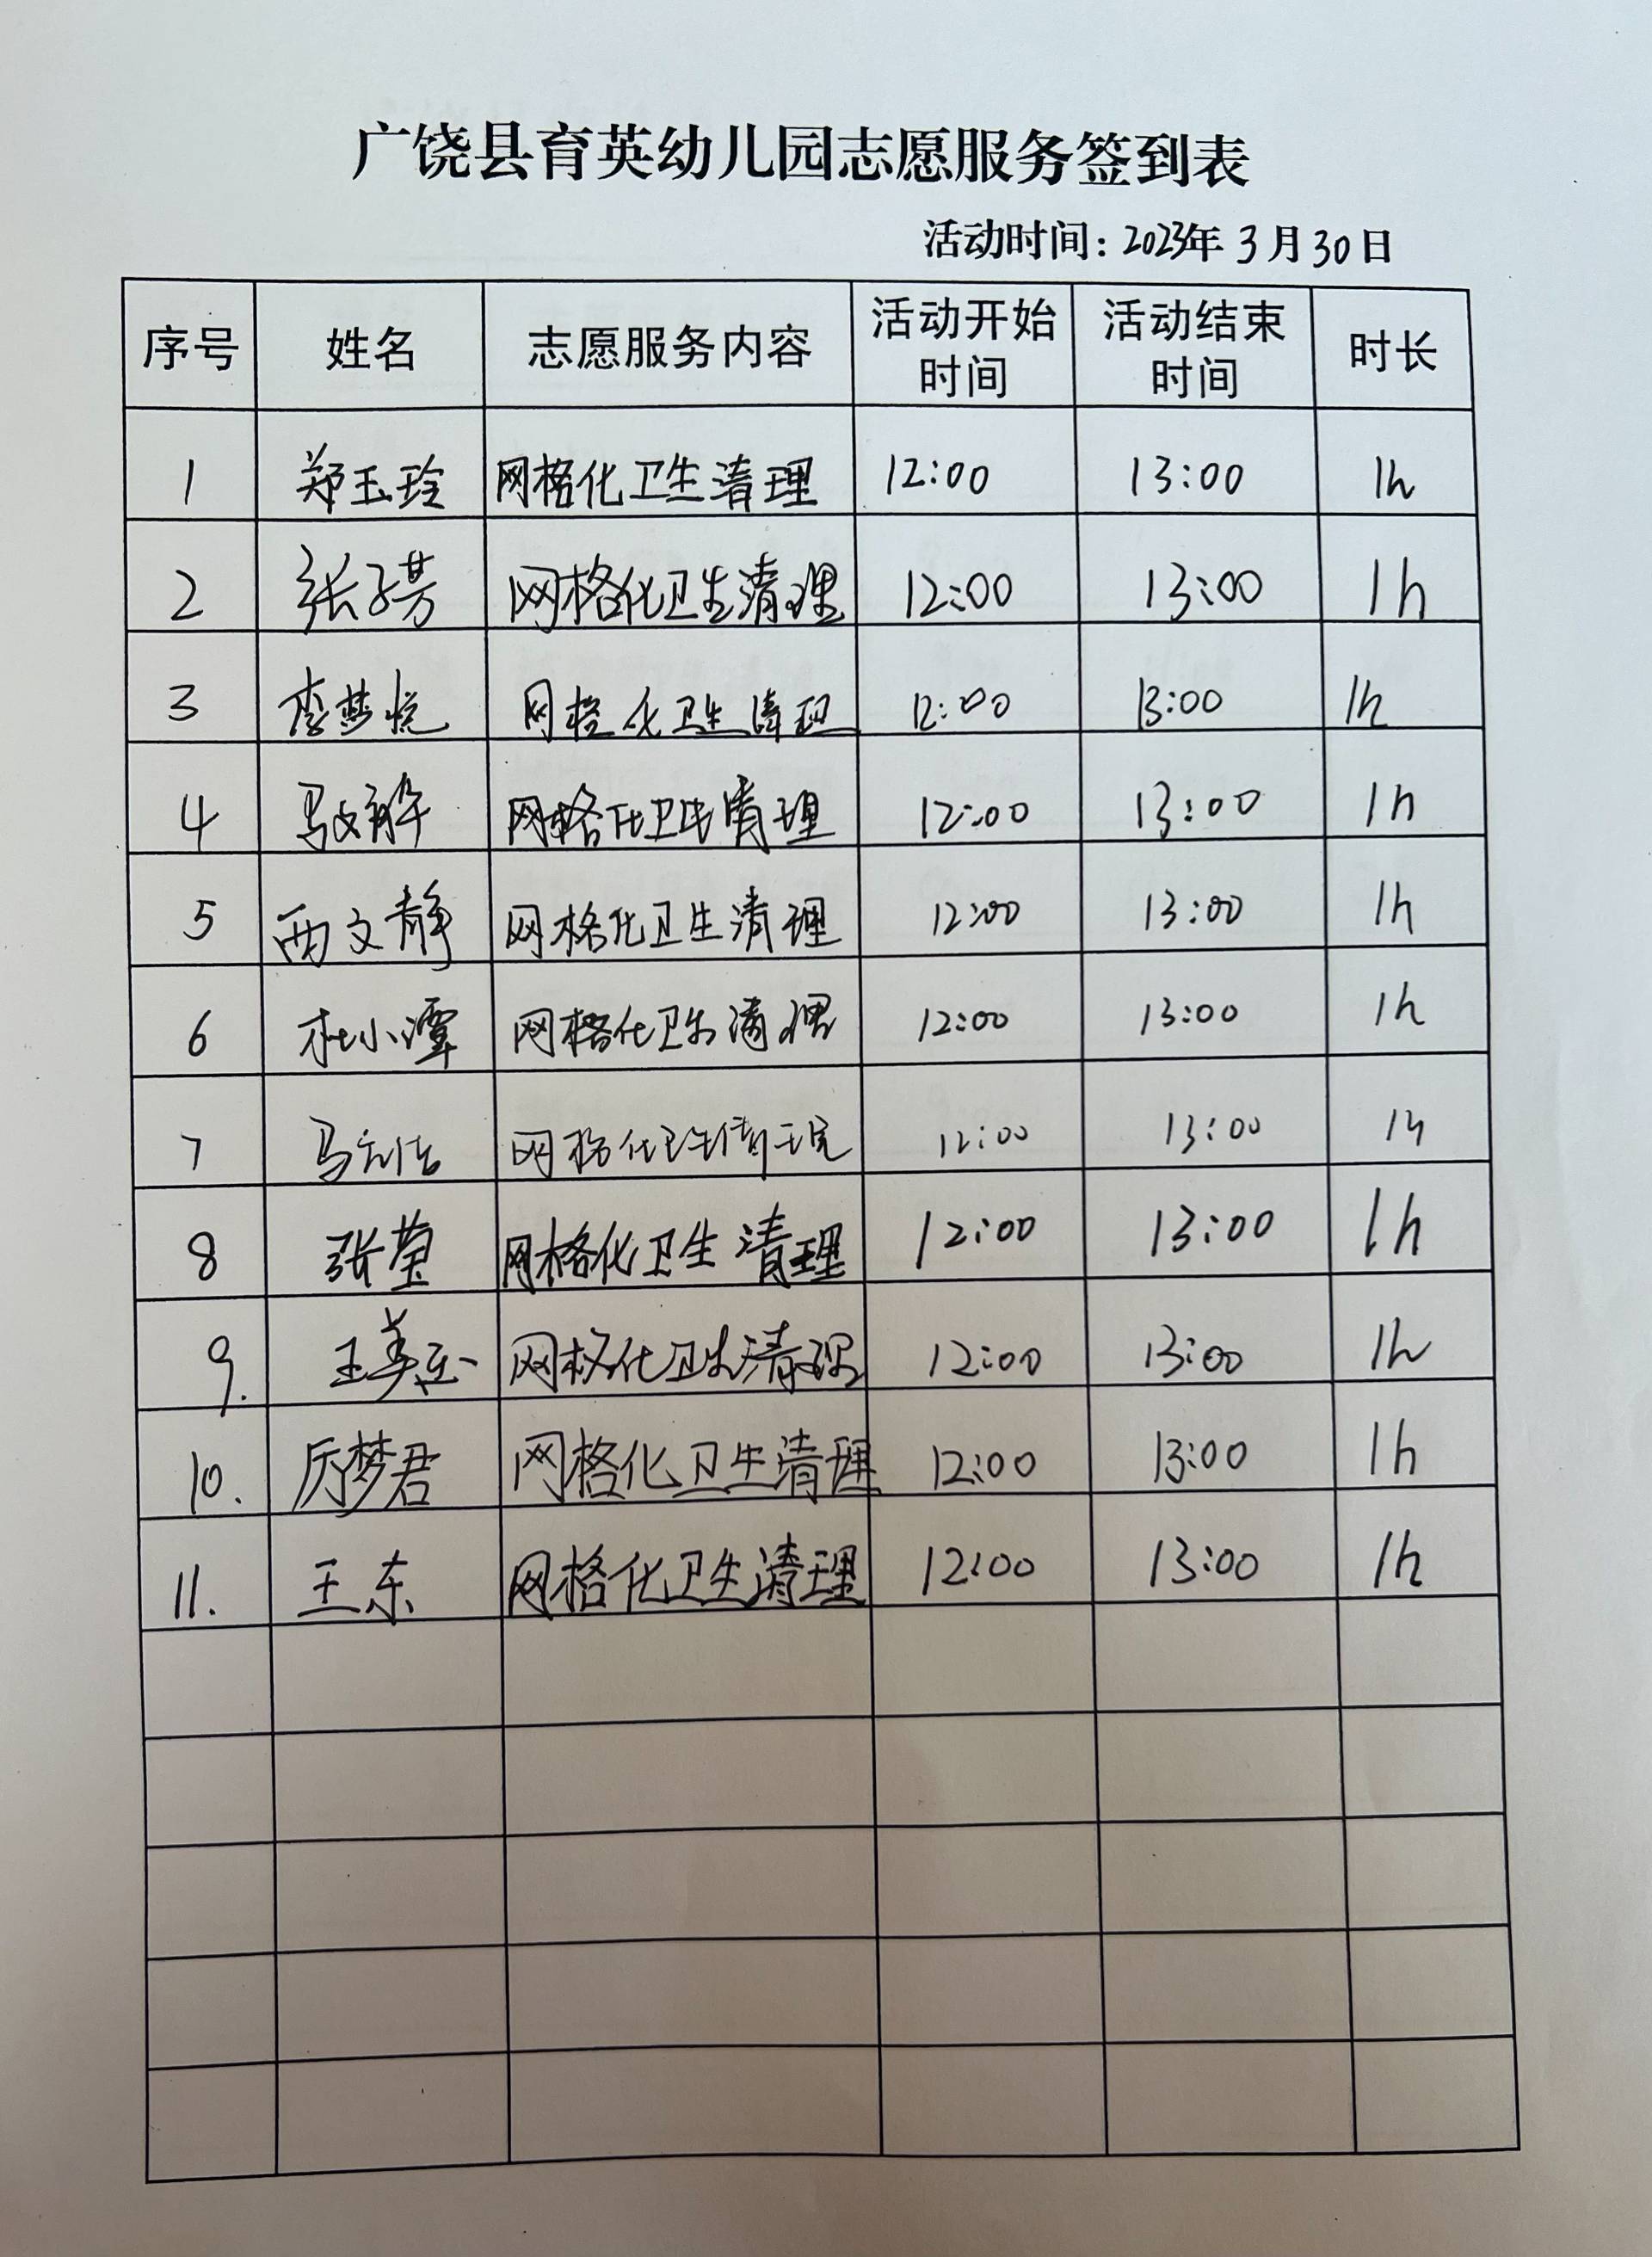 广饶县育英幼儿园志愿服务签到表
活动时间：2023年3月30日
序号 姓名 志愿服务内容 活动开始时间 活动结束时间 时长
1 郑玉玲 网格化卫生清理 12:00 13:00 1h
2 张子芳 网格化卫生清理 12:00 13:00 1h
3 李梦悦 网格化卫生清理 12:00 13:00 1h
4 马文 网格化卫生清理 12:00 13:00 1h
5 西文静 网格化卫生清理 12:00 13:00 1h
6 杜小潭 网格化卫生清理 12:00 13:00 1h
7 马 网格化卫生清理 12:00 13:00 1h
8 张莹 网格化卫生清理 12:00 13:00 1h
9. 王美玉 网格化卫生清理 12:00 13:00 1h
10. 厉梦君 网格化卫生清理 12:00 13:00 1h
11. 王东 网格化卫生清理 12:00 13:00 1h